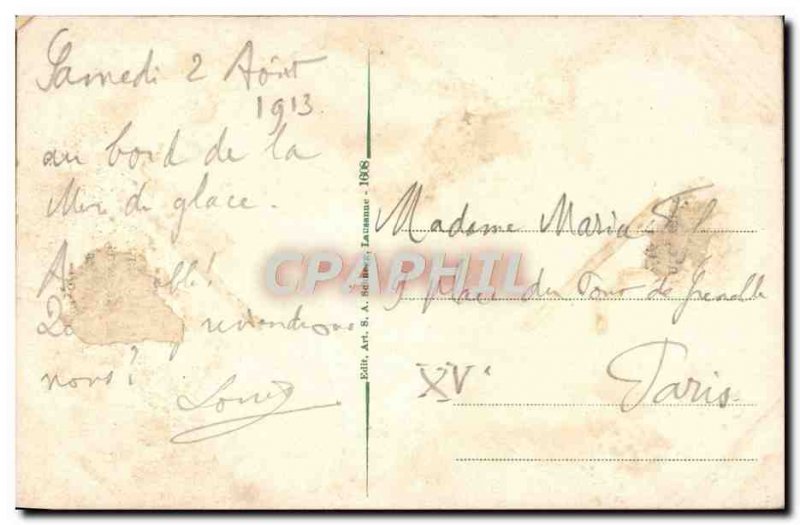 Samedi 2 Août
1913
au bord de la
Mer de glace.
reviendrons
nous?
Louis
Edit. Art. S. A. Lausanne - 1608
Madame Maria
9 place du Tour de Grenelle
XVe
Paris
CPAPHIL